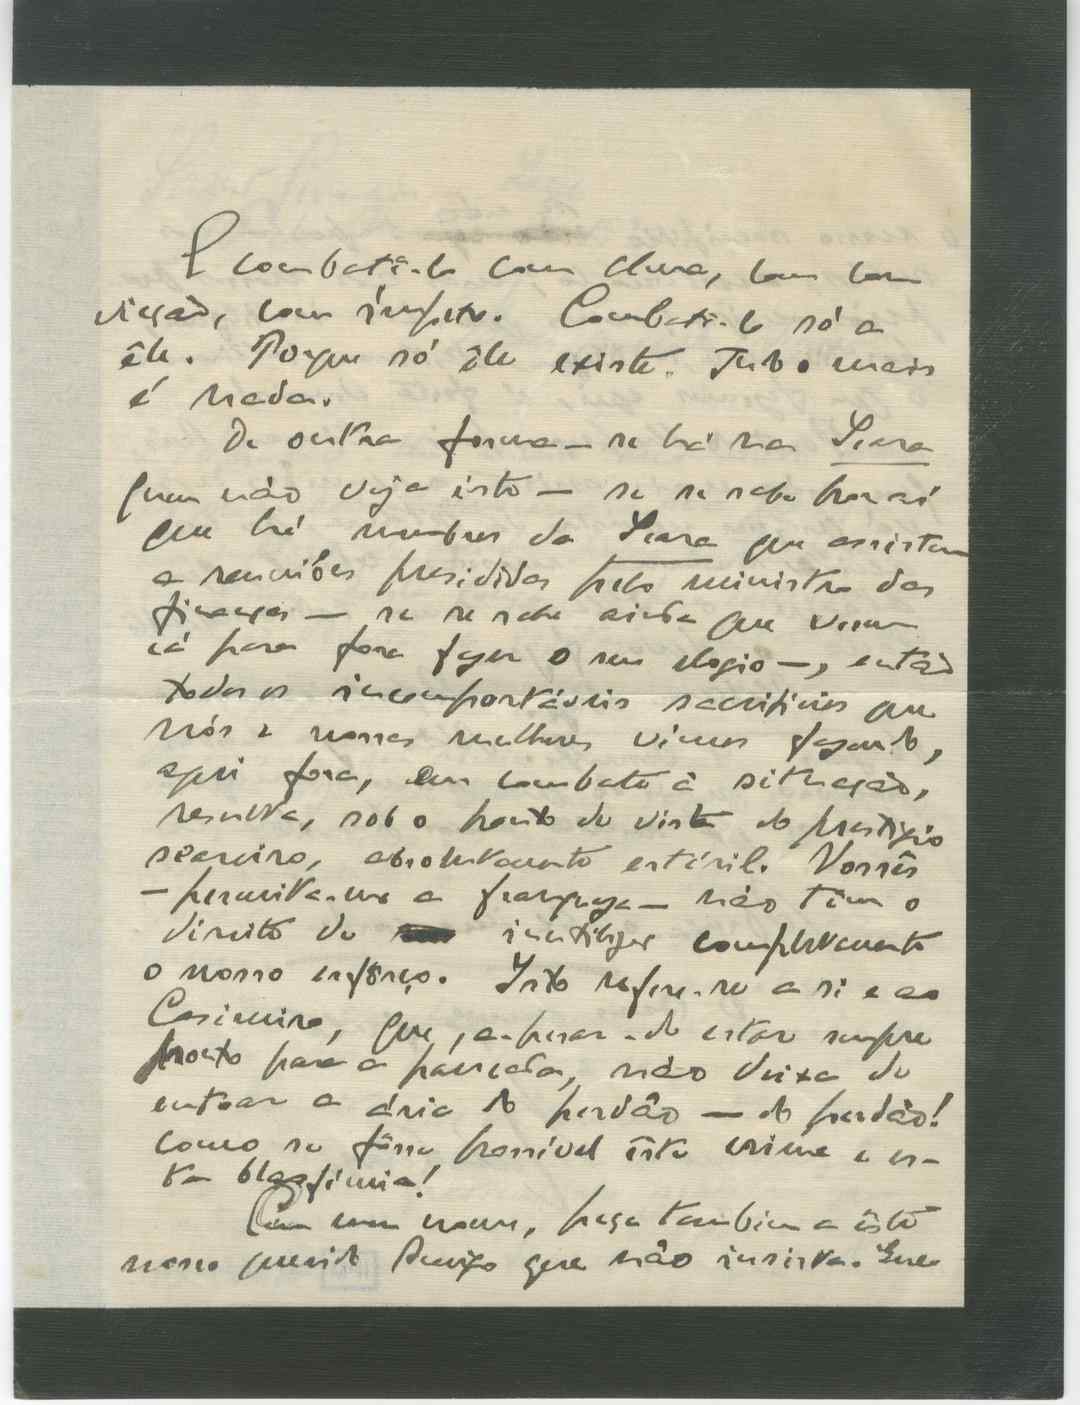 E combatê-lo com alma, com con
vicção, com ímpeto. Combatê-lo só a
êle. Porque só êle existe. Tudo mais
é nada.
De outra forma — se há na Seara
quem não veja isto — se se sabe por aí
que há membros da Seara que assistem
a reuniões presididas pelo ministro das
finanças — se se sabe ainda que veem
cá para fora fazer o seu elogio —, então
todos os incomportáveis sacrifícios que
nós e nossas mulheres vimos fazendo,
aqui fora, em combate à situação,
resulta, sob o ponto de vista do prestígio
seareiro, absolutamente estéril. Vossês
— permita-me a franqueza — não têm o
direito de inutilizar completamente
o nosso esfôrço. Isto refere-se a si e ao
Casimiro, que, a-pesar-de estar sempre
pronto para a pancada, não deixa de
entoar a ária do perdão — do perdão!
como se fôsse possível êste crime e es-
ta blasfémia!
Em meu nome, peça tambem a êste
nosso querido Amigo que não insista. Que